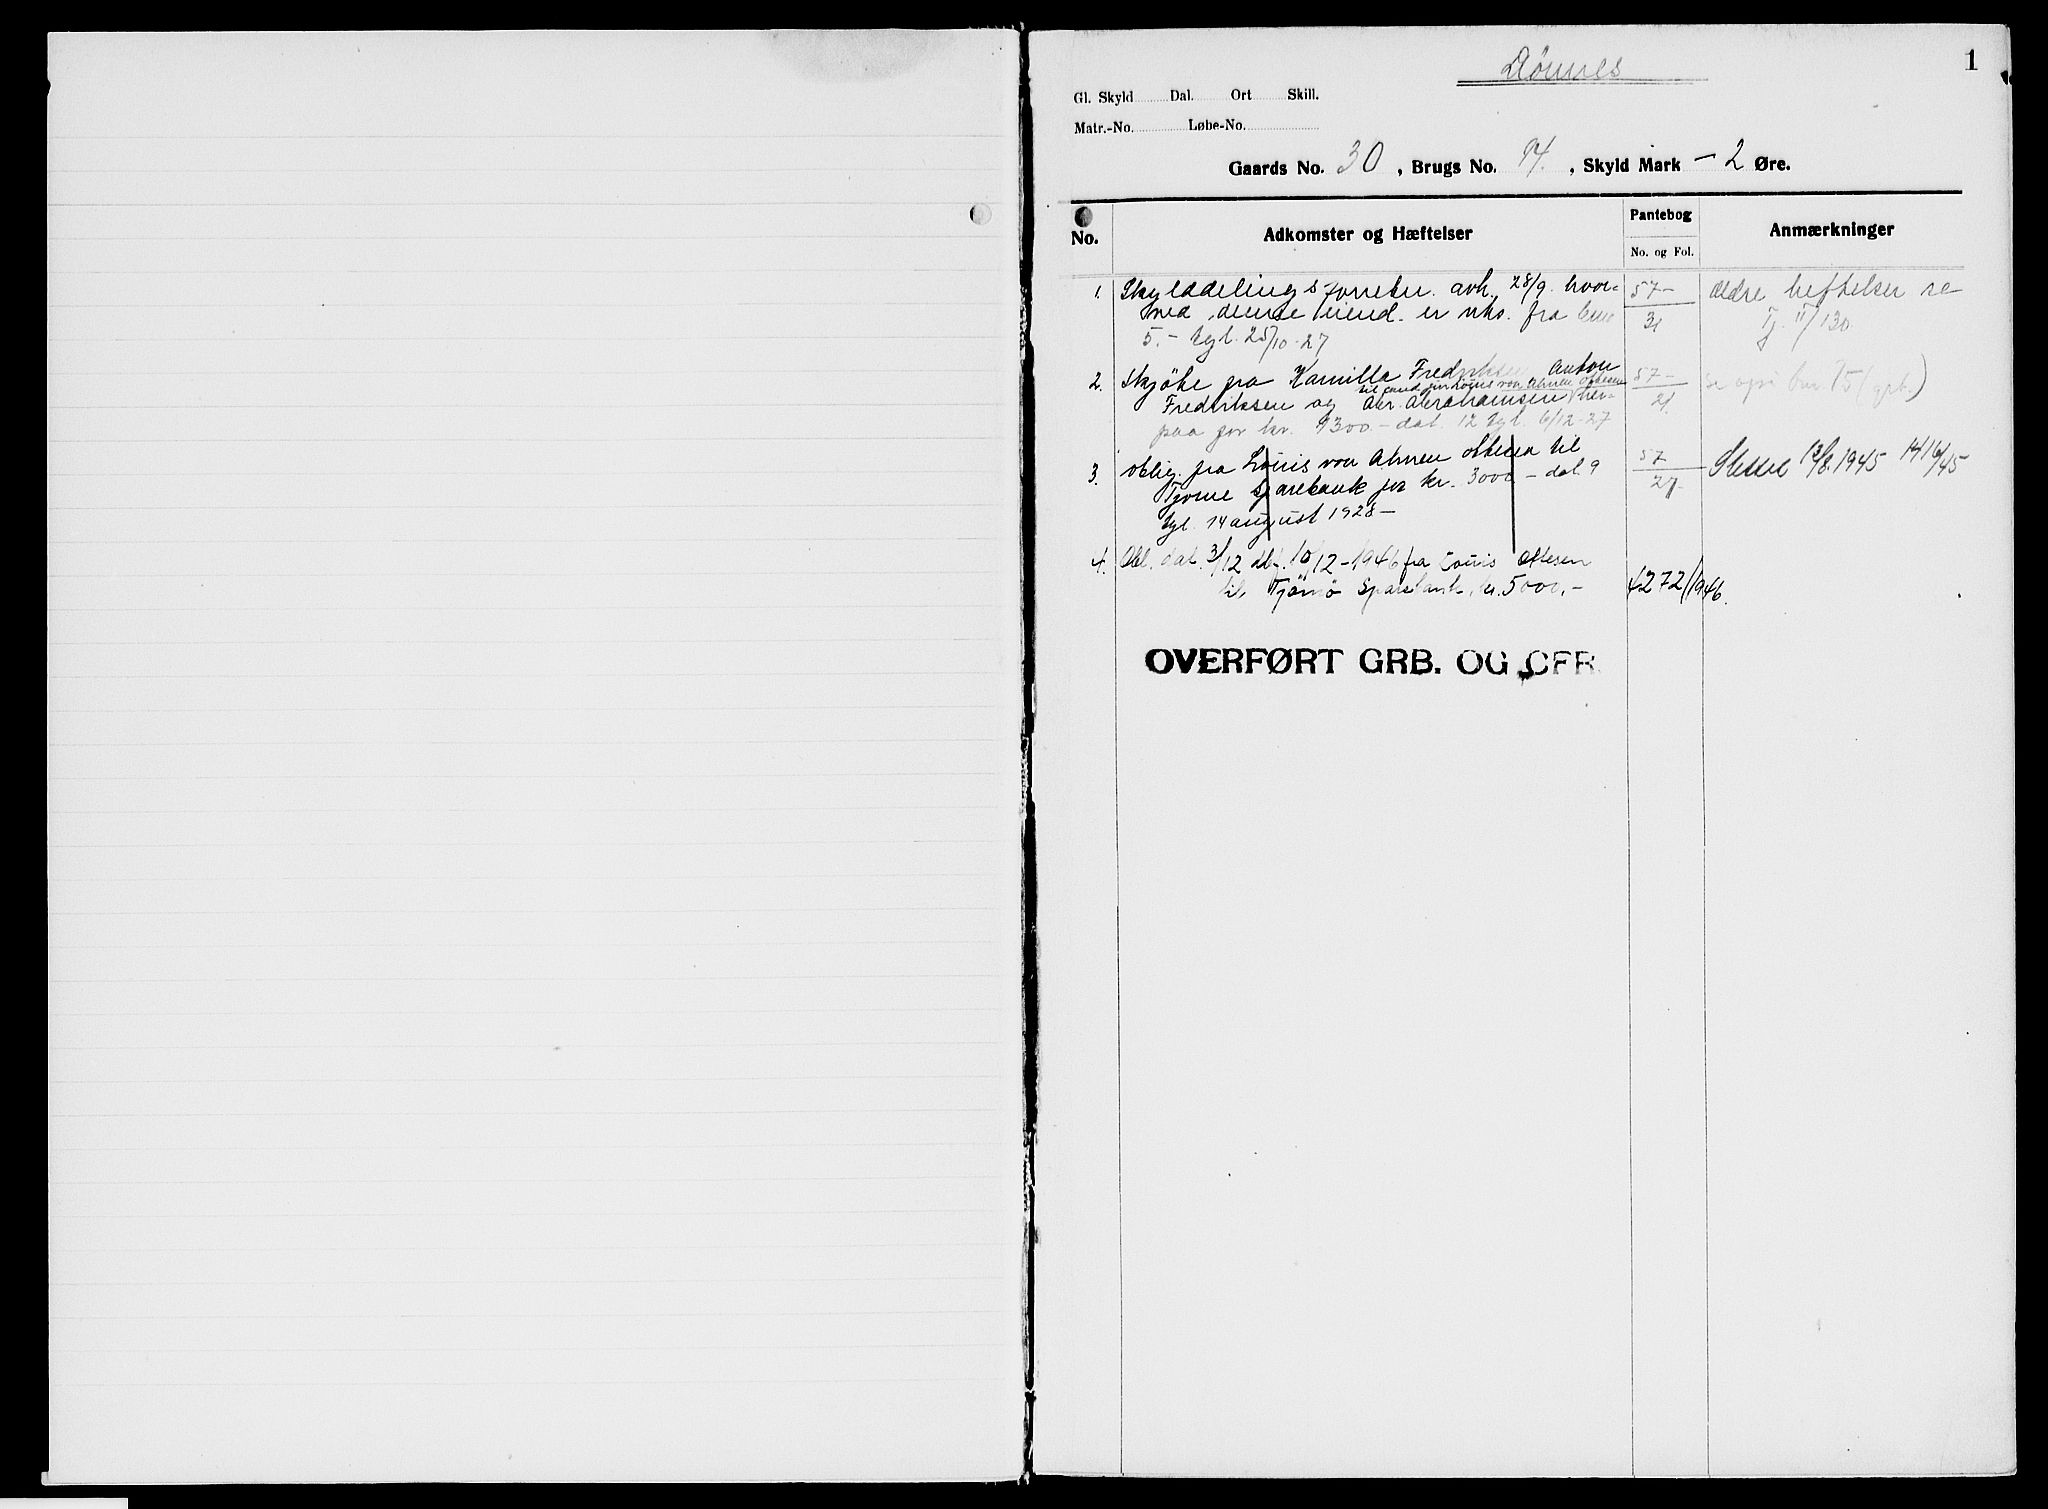 1
Gl. Skyld Dal. Ort Skill.
Matr.-No. Løbe-No.
Gaards No. 30, Brugs No. 94., Skyld Mark - 2 Øre.
No. Adkomster og Hæftelser Pantebog No. og Fol. Anmærkninger
1. Skylddelingsforretn. avh. 28/9. hvor= 57- Ældre heftelser se
ved denne eiend. er utks. fra bno 31 Tj. II/130.
5.- tgl. 25/10-27
2. Skjöte fra Kamilla Fredriksen Anton 57- se også bnr. 75 (grb.)
til cand. Louis von Ahnen Ottesen
Fredriksen og Abr. Abrahamsen her= 21.
paa for kr. 9300.- dat. 12 tgl. 6/12-27
3. Oblig. fra Louis von Ahnen Ottesen til 57 Slettet 13/8.1945 1416/45
Tjøme Sparebank for kr. 3000 - dat. 9 27-
tgl. 14 august 1928-
4. Obl. dat. 3/12 dbf. 10/12-1946 fra Louis Ottesen
til Tjömö Sparebank, kr. 5000,- 4272/1946.
OVERFØRT GRB. OG CFR.